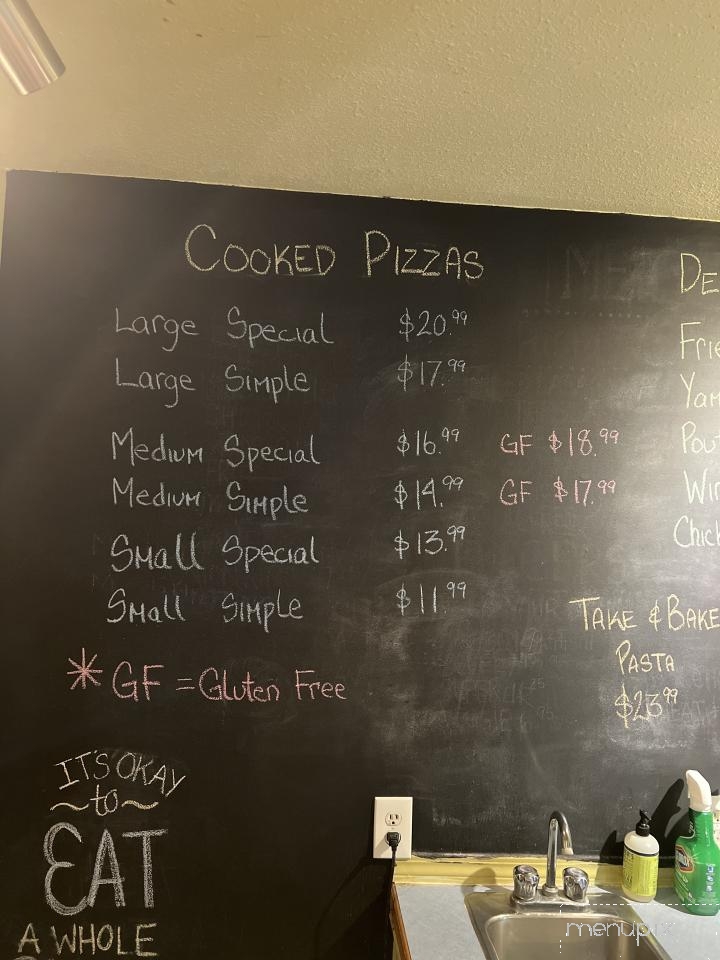 COOKED PIZZAS
Large Special $20.99
Large Simple $17.99
Medium Special $16.99 GF $18.99
Medium Simple $14.99 GF $17.99
Small Special $13.99
Small Simple $11.99
* GF = Gluten Free
IT'S OKAY
~to~
EAT
A WHOLE
DE
Frie
Yam
Pou
Win
Chick
TAKE & BAKE
PASTA
$23.99
menupix